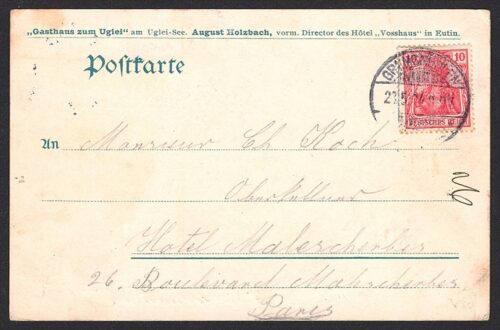 „Gasthaus zum Uglei" am Uglei-See. August Holzbach, vorm. Director des Hôtel „Vosshaus" in Eutin.
Postkarte
10
An Monsieur Ch. Koch
Oberkellner
Hotel Malesherbes
26. Boulevard Malesherbes
Paris